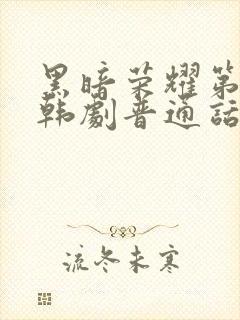 黑暗荣耀第
韩剧普通话
流冬未寒